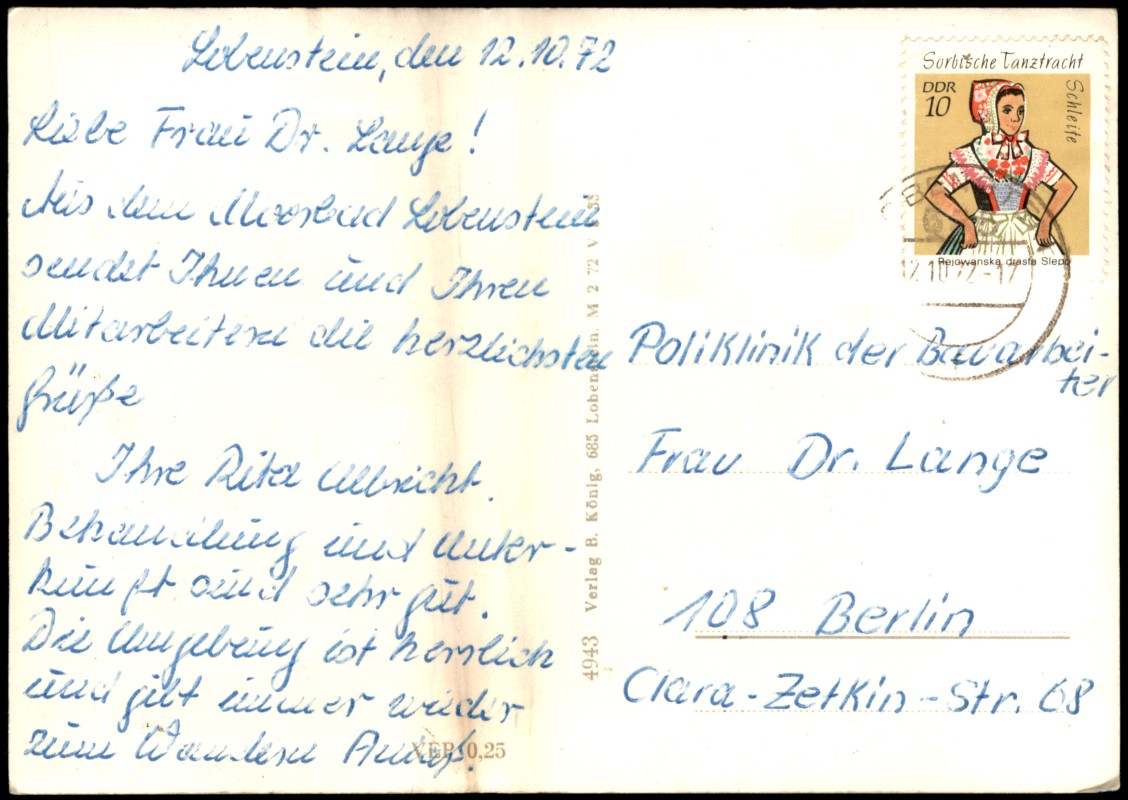 Lobenstein, den 12.10.72
Liebe Frau Dr. Lange!
Aus dem Moorbad Lobenstein
sendet Ihnen und Ihren
Mitarbeitern die herzlichsten
Grüße
Ihre Rita Albricht.
Behandlung und Unter-
kunft sind sehr gut.
Die Umgebung ist herrlich
und gibt immer wieder
zum Wandern Anlaß.
4943 Verlag B. König, 685 Lobenstein. M 2 72 V
VEP 0,25
Sorbische Tanztracht
DDR
10
Schleife
Rejowanska drasta Slepo
12.10.72-17
Poliklinik der Bauarbei-
ter
Frau Dr. Lange
108 Berlin
Clara-Zetkin-Str. 68